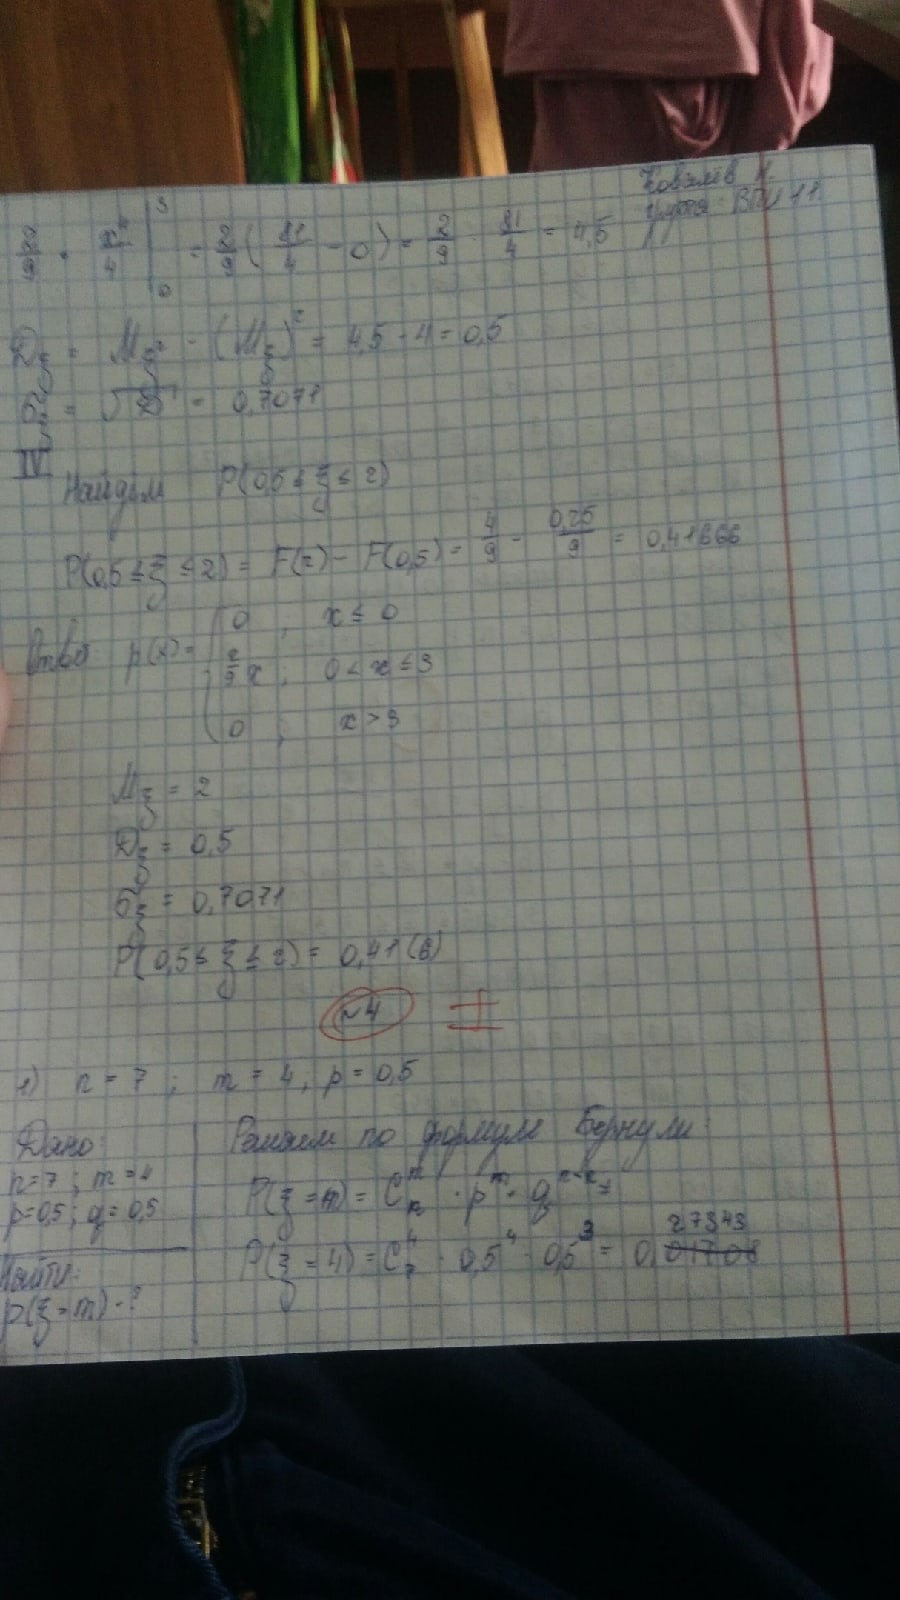 Ковалёв К.
группа ВПИ 11
2/9 · x⁴/4 |₀³ = 2/9 (81/4 - 0) = 2/9 · 81/4 = 4,5
Dξ = Mξ² - (Mξ)² = 4,5 - 4 = 0,5
σξ = √D = 0,7071
IV
Найдём P(0,5 ≤ ξ ≤ 2)
P(0,5 ≤ ξ ≤ 2) = F(2) - F(0,5) = 4/9 - 0,25/9 = 0,41666
Ответ p(x) = { 0 , x ≤ 0
2/9 x ; 0 < x ≤ 3
0 ; x > 3
Mξ = 2
Dξ = 0,5
σξ = 0,7071
P(0,5 ≤ ξ ≤ 2) = 0,41(6)
~4
1) n = 7 ; m = 4 ; p = 0,5
Дано:
n=7 ; m=4
p=0,5 ; q=0,5
Найти:
p(ξ=m) - ?
Решаем по формуле Бернули:
P(ξ=m) = Cₙᵐ · pᵐ · qⁿ⁻ᵏ =
P(ξ=4) = C₇⁴ · 0,5⁴ · 0,5³ = 0,27343